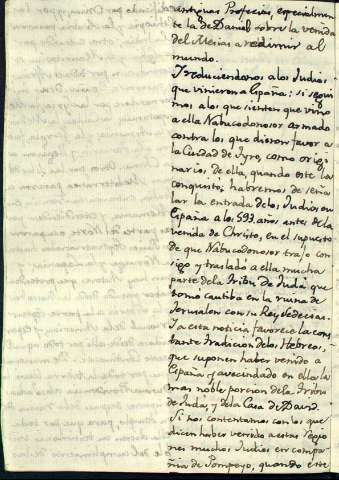 antiguas Profecias, especialmen
te la de Daniel sobre la venida
del Mesias a redimir al
mundo.
Treduciendonos a los Judios
que vinieron a España: si segui
mos a los que sienten que vino
a ella Nabucodonosor armado
contra los que dieron favor a
la Ciudad de Tyro, como origi
narios de ella, quando este la
conquistó; habremos de seña
lar la entrada de los Judios en
España a los 593. años antes de la
venida de Christo, en el supuesto
de que Nabucodonosor trajo con
sigo y trasladó a ella mucha
parte de la Tribu de Judá que
tomó cautiba en la ruina de
Jerusalen con su Rey Sedecias.
Ja esta noticia favorece la cons
tante Tradicion de los Hebreos,
que suponen haber venido a
España y avecindado en ella la
mas noble porcion de la Tribu
de Judá, y de la Casa de David.
Si nos contentamos con los que
dicen haber venido a estas Regio
nes muchos Judios en compa
ñia de Pompeyo, quando este